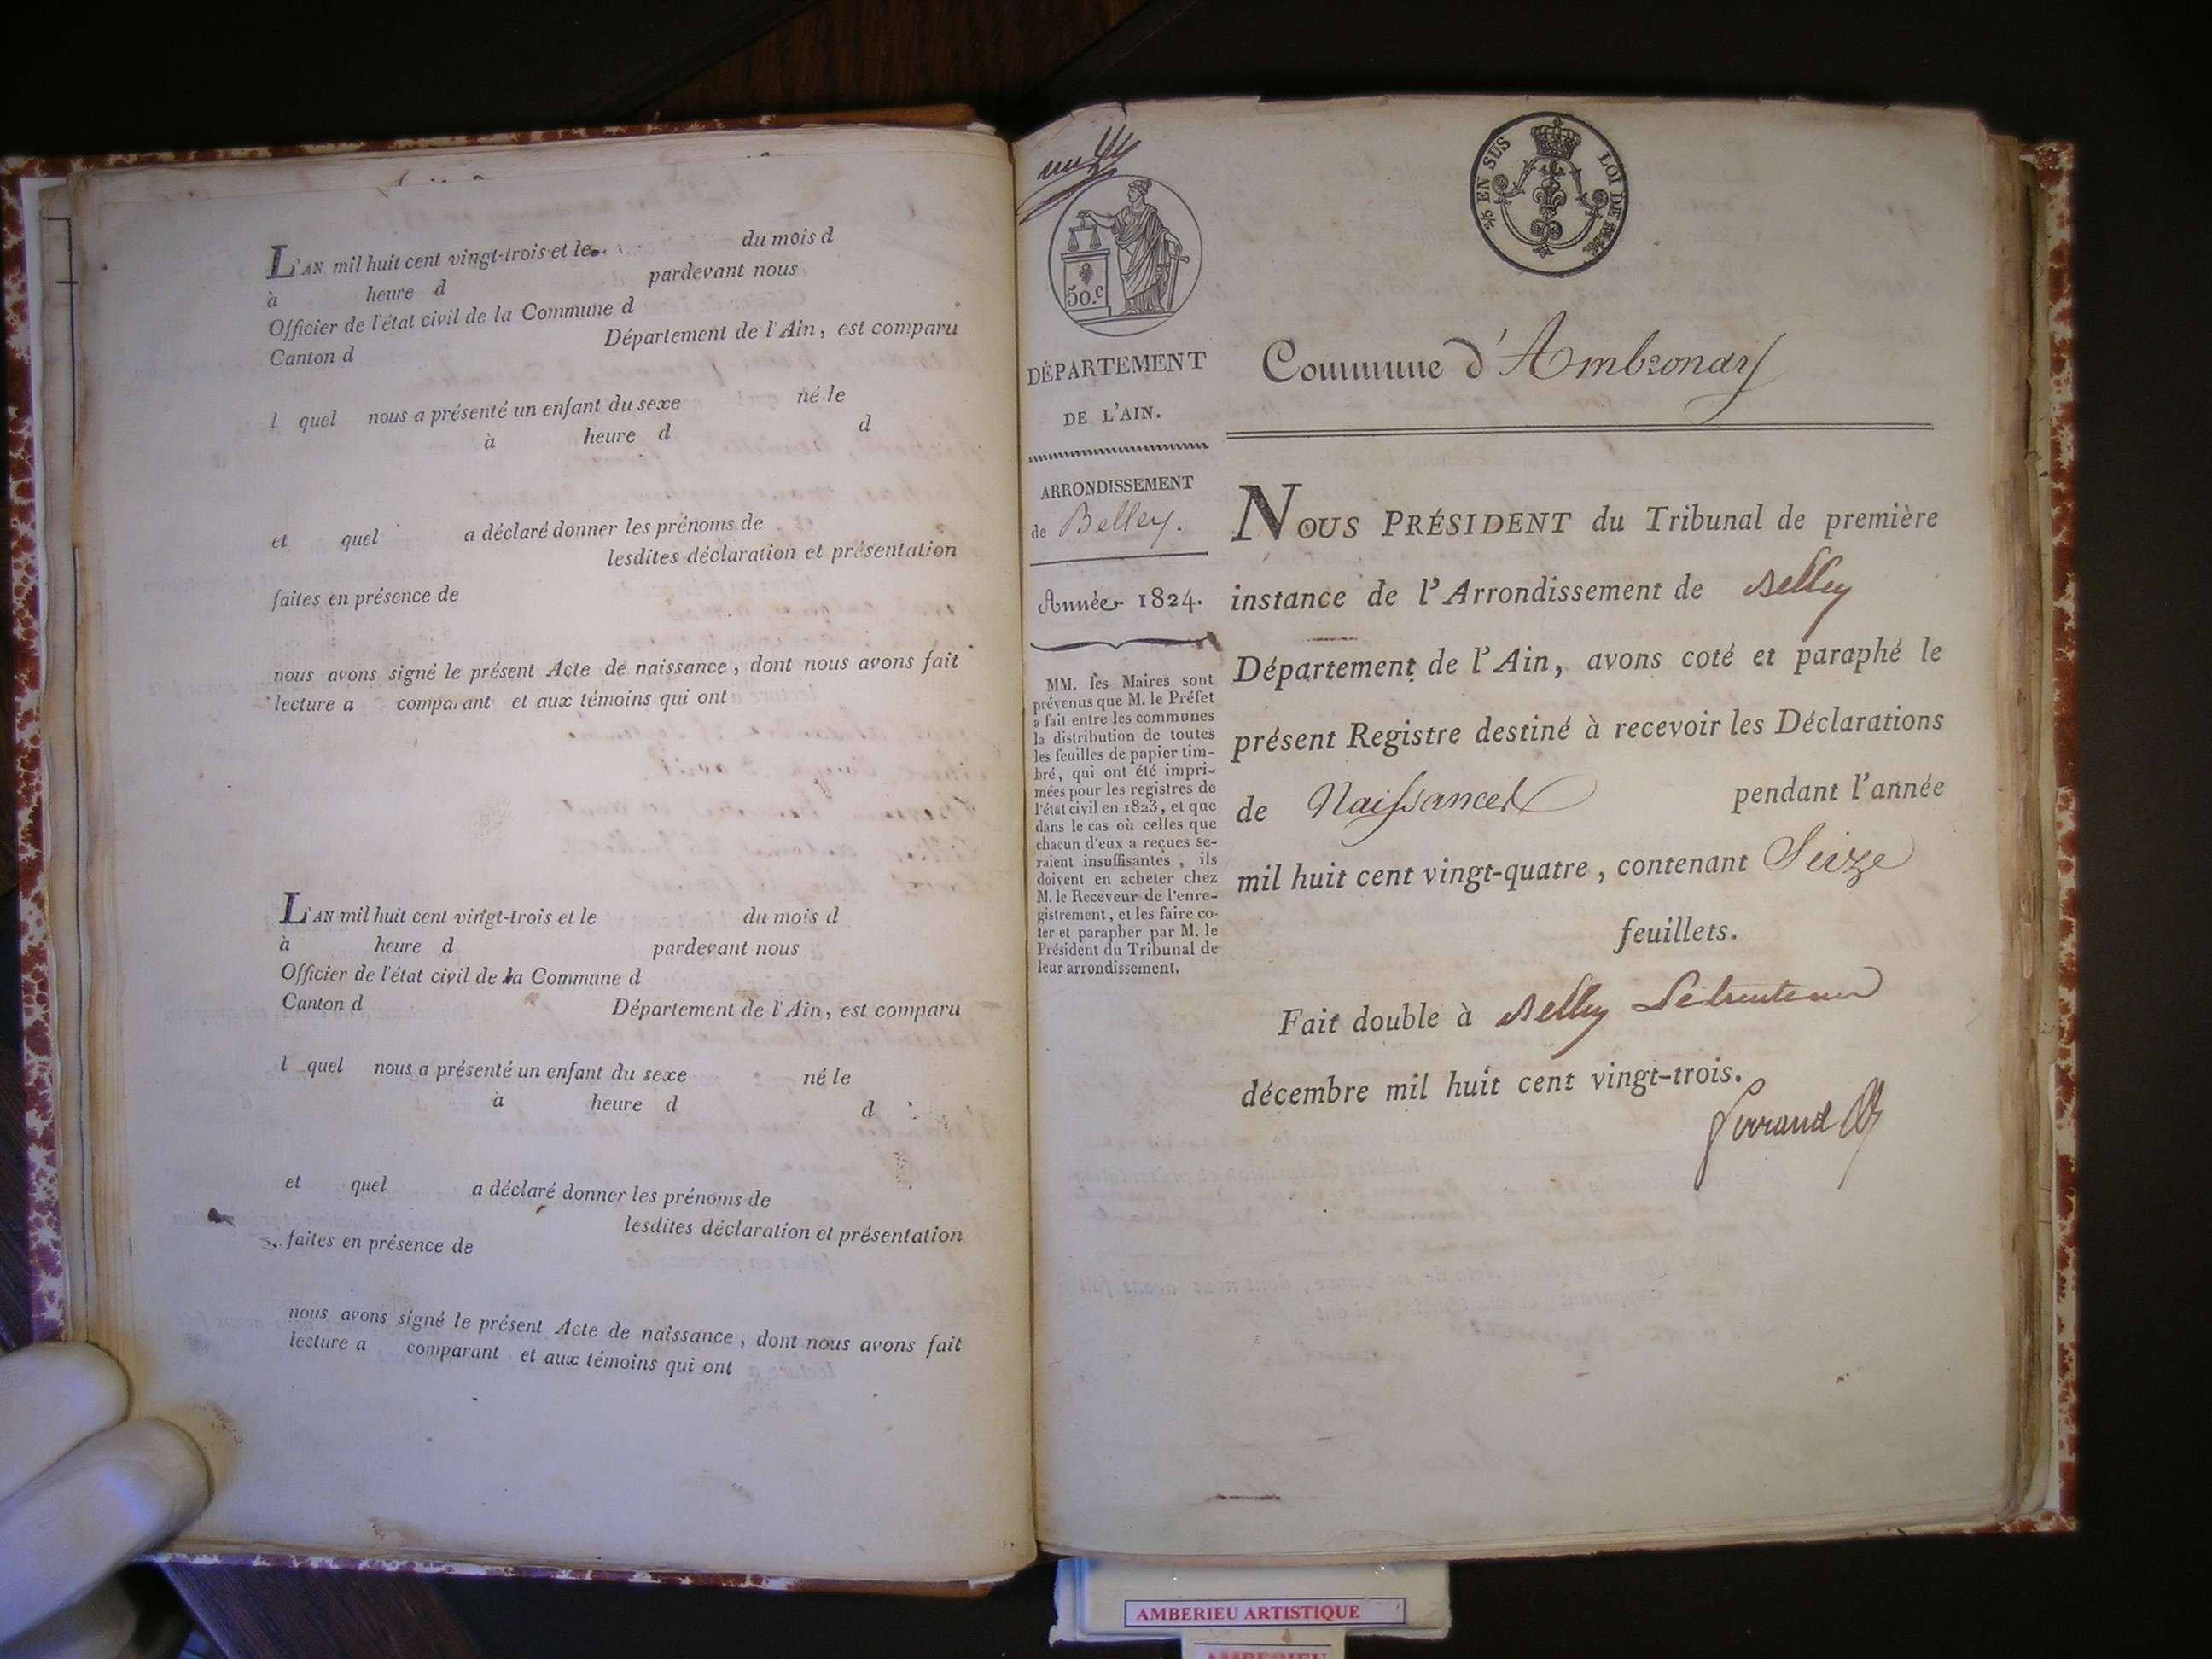 L'AN mil huit cent vingt-trois et le du mois d
à heure d pardevant nous
Officier de l'état civil de la Commune d
Canton d Département de l'Ain, est comparu
l quel nous a présenté un enfant du sexe né le
à heure d d
et quel a déclaré donner les prénoms de
lesdites déclaration et présentation
faites en présence de
nous avons signé le présent Acte de naissance, dont nous avons fait
lecture a comparant et aux témoins qui ont
L'AN mil huit cent vingt-trois et le du mois d
à heure d pardevant nous
Officier de l'état civil de la Commune d
Canton d Département de l'Ain, est comparu
l quel nous a présenté un enfant du sexe né le
à heure d d
et quel a déclaré donner les prénoms de
lesdites déclaration et présentation
faites en présence de
nous avons signé le présent Acte de naissance, dont nous avons fait
lecture a comparant et aux témoins qui ont
50.c
EN SUS LOI DE
DÉPARTEMENT
DE L'AIN.
ARRONDISSEMENT
de Belley.
Année 1824.
MM. les Maires sont
prévenus que M. le Préfet
a fait entre les communes
la distribution de toutes
les feuilles de papier tim-
bré, qui ont été impri-
mées pour les registres de
l'état civil en 1823, et que
dans le cas où celles que
chacun d'eux a reçues se-
raient insuffisantes, ils
doivent en acheter chez
M. le Receveur de l'enre-
gistrement, et les faire co-
ter et parapher par M. le
Président du Tribunal de
leur arrondissement.
Commune d'Ambronay
NOUS PRÉSIDENT du Tribunal de première
instance de l'Arrondissement de Belley
Département de l'Ain, avons coté et paraphé le
présent Registre destiné à recevoir les Déclarations
de Naissances pendant l'année
mil huit cent vingt-quatre, contenant Seize
feuillets.
Fait double à Belley
décembre mil huit cent vingt-trois.
AMBERIEU ARTISTIQUE
AMBERIEU